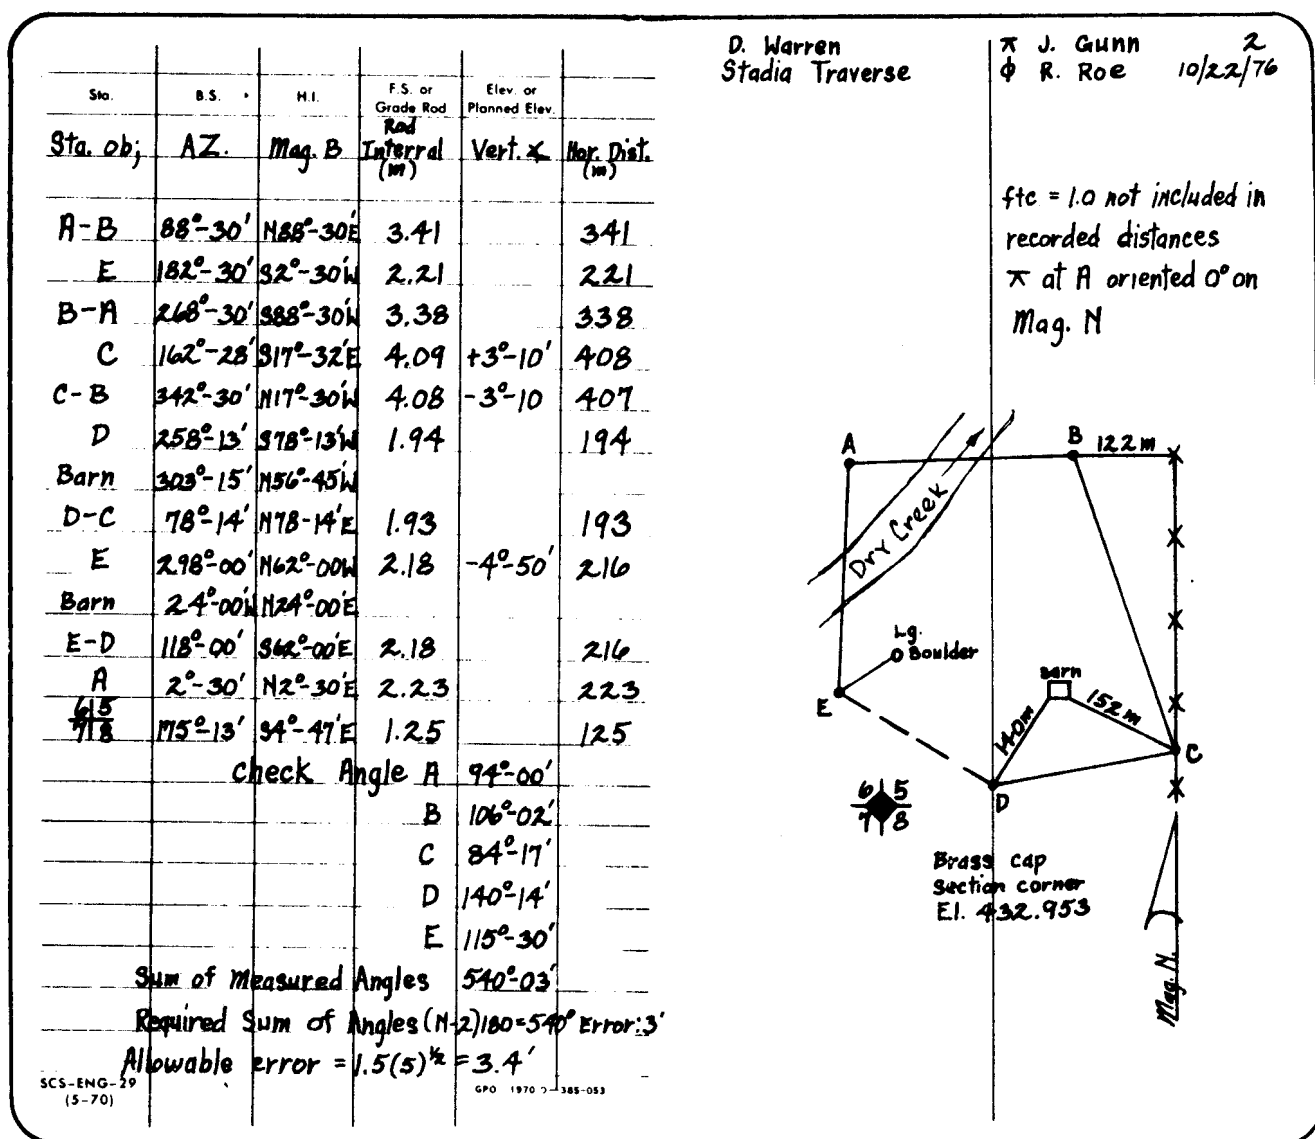 D. Warren
Stadia Traverse
π J. Gunn 2
ϕ R. Roe 10/22/76
Sta. B.S. H.I. F.S. or Grade Rod Elev. or Planned Elev.
Sta. obj AZ. Mag. B Rod Interral (m) Vert. ∡ Hor. Dist. (m)
A-B 88°-30' N88°-30'E 3.41 341
E 182°-30' S2°-30'W 2.21 221
B-A 268°-30' S88°-30'W 3.38 338
C 162°-28' S17°-32'E 4.09 +3°-10' 408
C-B 342°-30' N17°-30'W 4.08 -3°-10 407
D 258°-13' S78°-13'W 1.94 194
Barn 303°-15' N56°-45'W
D-C 78°-14' N78-14'E 1.93 193
E 298°-00' N62°-00W 2.18 -4°-50' 216
Barn 24°-00'W N24°-00'E
E-D 118°-00' S62°-00'E 2.18 216
A 2°-30' N2°-30'E 2.23 223
6|5
7|8 175°-13' S4°-47'E 1.25 125
check Angle A 94°-00'
B 106°-02'
C 84°-17'
D 140°-14'
E 115°-30'
Sum of Measured Angles 540°-03'
Required Sum of Angles (N-2)180=540° Error:3'
Allowable error = 1.5(5)½ = 3.4'
SCS-ENG-29
(5-70)
GPO 1970 O-385-053
ftc = 1.0 not included in
recorded distances
π at A oriented 0° on
Mag. N
A
B
122 m
Dry Creek
Lg.
Boulder
E
Barn
140m
152 m
C
D
6 5
7 8
Brass cap
section corner
El. 432.953
Mag. N.